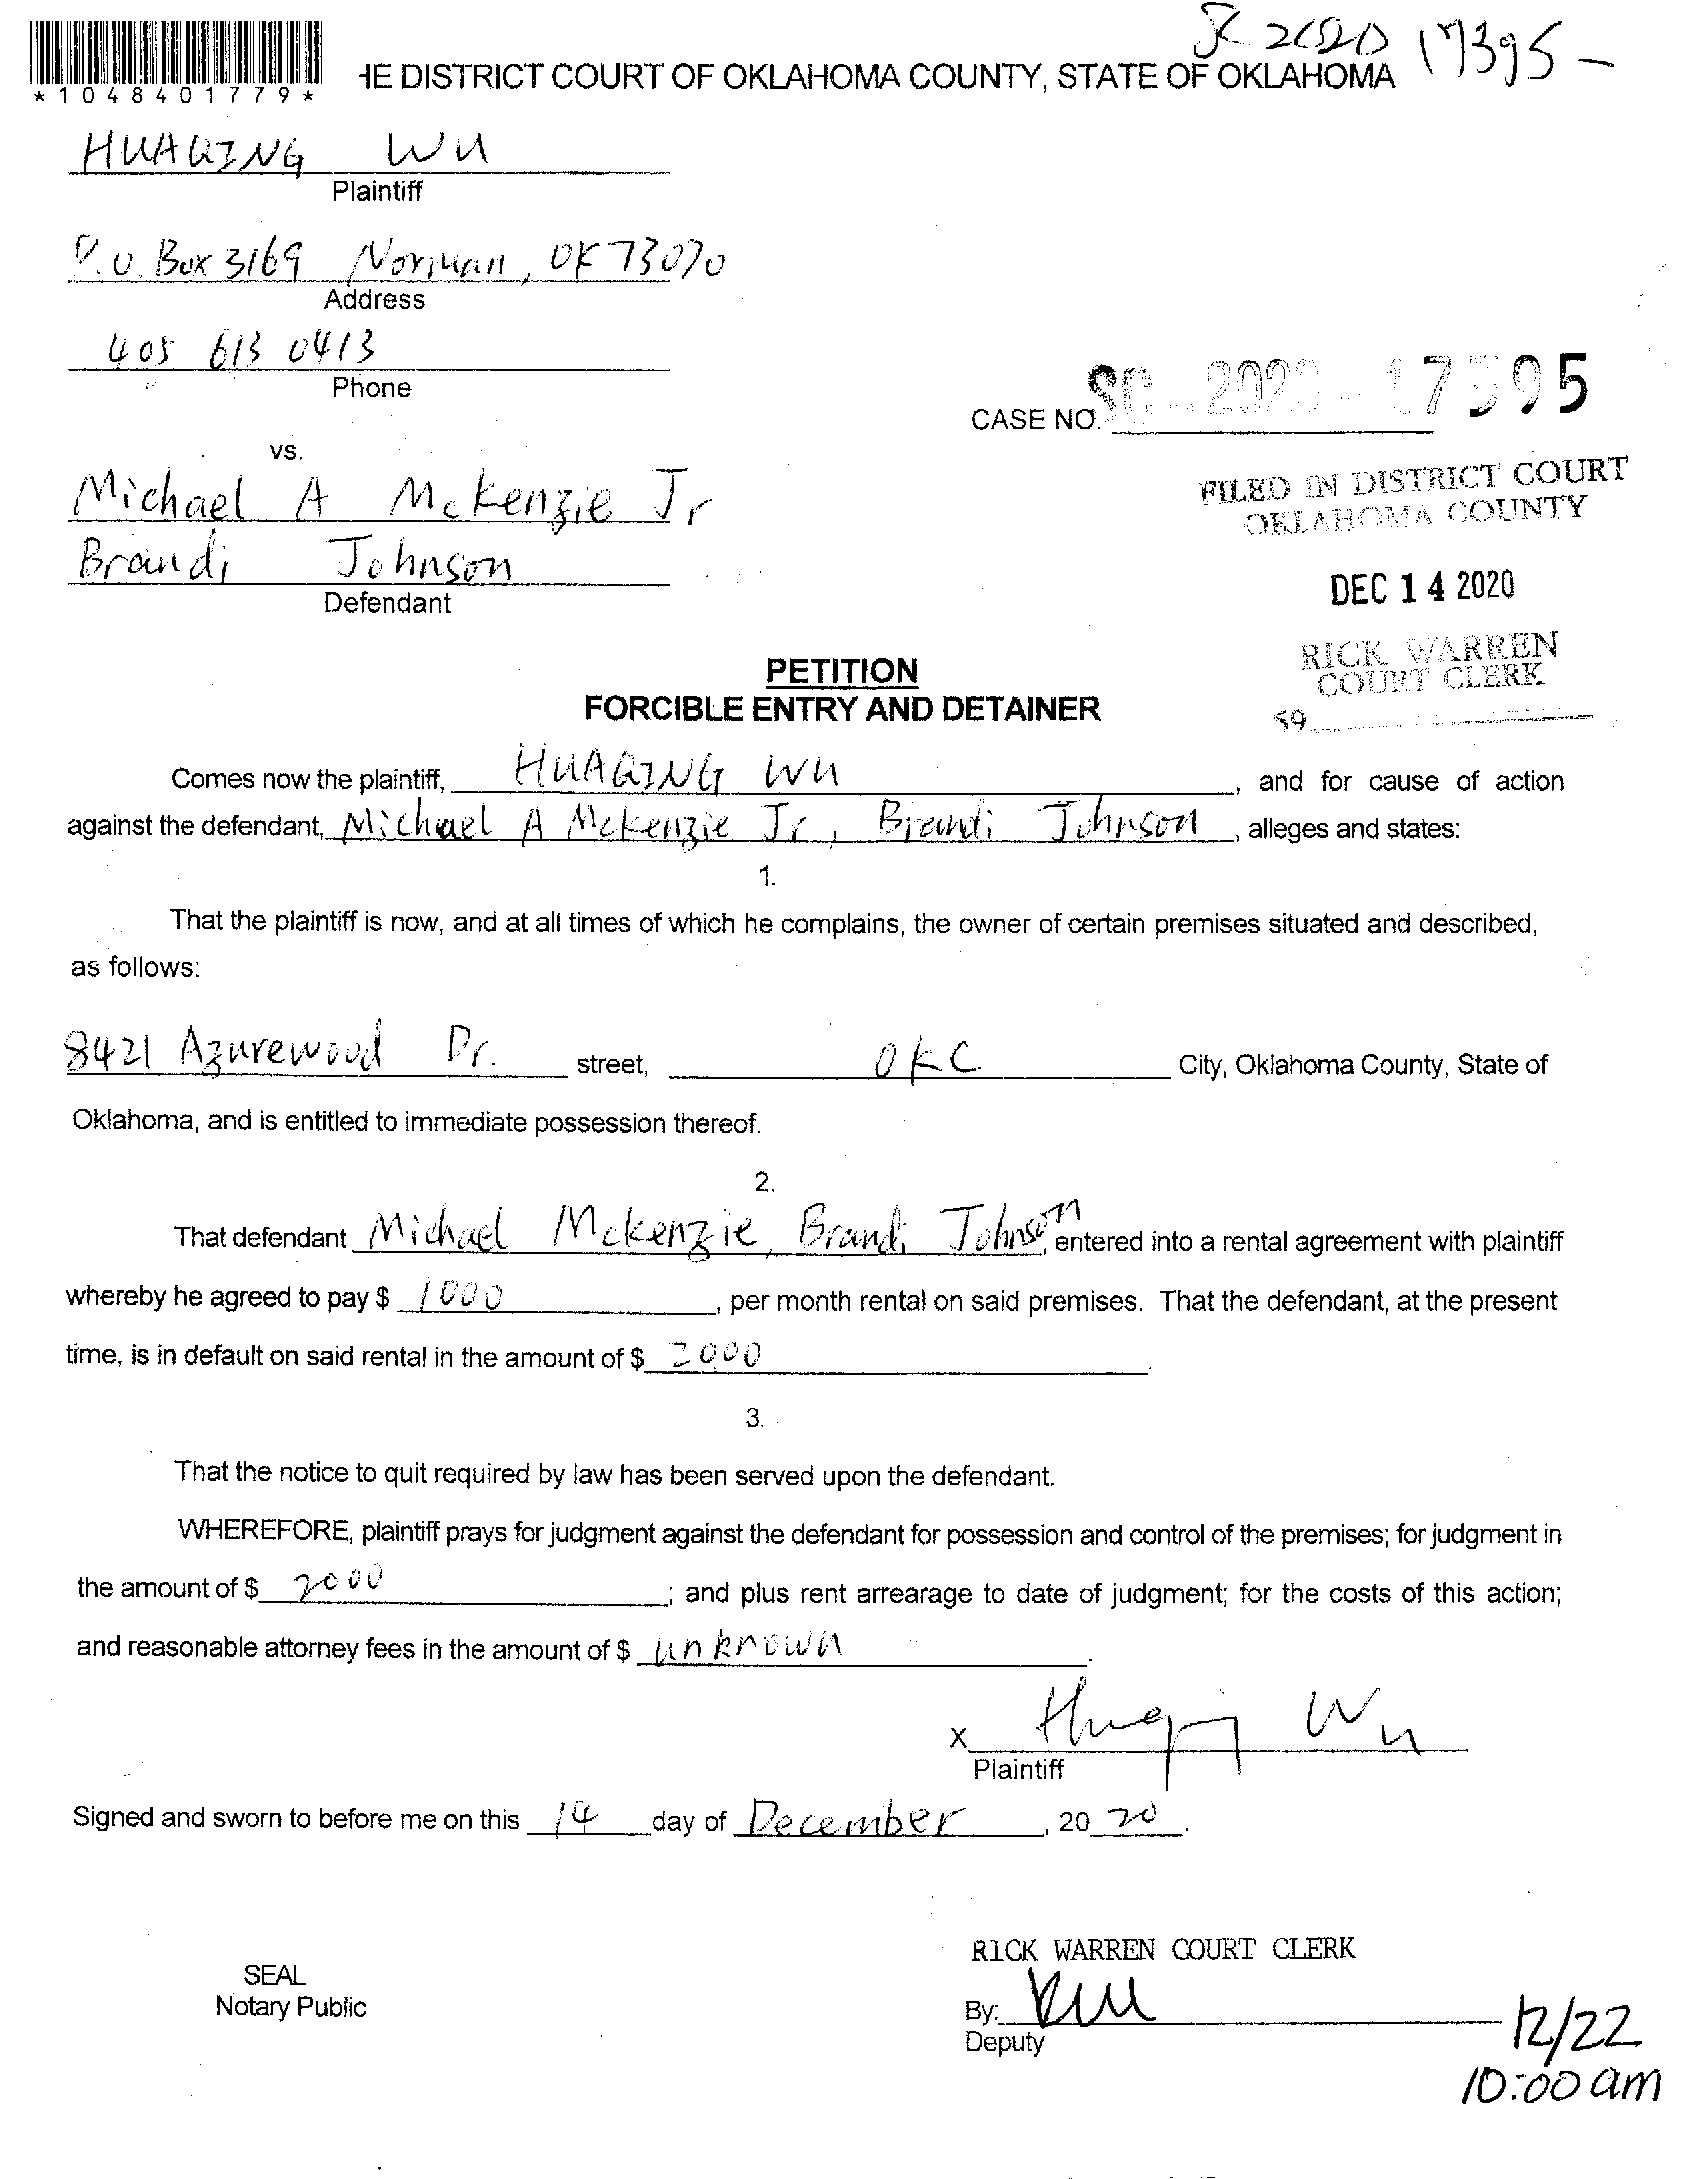 SC 2020 17395 -
*1048401779*
HE DISTRICT COURT OF OKLAHOMA COUNTY, STATE OF OKLAHOMA
HUAQING WU
Plaintiff
P.O. Box 3169 Norman, OK 73070
Address
405 613 0413
Phone
SC 2020-17395
CASE NO.
vs.
Michael A Mckenzie Jr
FILED IN DISTRICT COURT
OKLAHOMA COUNTY
Brandi Johnson
Defendant
DEC 14 2020
RICK WARREN
COURT CLERK
59
PETITION
FORCIBLE ENTRY AND DETAINER
Comes now the plaintiff, HUAQING WU, and for cause of action
against the defendant, Michael A Mckenzie Jr, Brandi Johnson, alleges and states:
1.
That the plaintiff is now, and at all times of which he complains, the owner of certain premises situated and described,
as follows:
8421 Azurewood Dr. street, OKC City, Oklahoma County, State of
Oklahoma, and is entitled to immediate possession thereof.
2.
That defendant Michael Mckenzie, Brandi Johnson, entered into a rental agreement with plaintiff
whereby he agreed to pay $ 1000, per month rental on said premises. That the defendant, at the present
time, is in default on said rental in the amount of $ 2000.
3.
That the notice to quit required by law has been served upon the defendant.
WHEREFORE, plaintiff prays for judgment against the defendant for possession and control of the premises; for judgment in
the amount of $ 2000; and plus rent arrearage to date of judgment; for the costs of this action;
and reasonable attorney fees in the amount of $ unknown.
x Huaqing Wu
Plaintiff
Signed and sworn to before me on this 14 day of December, 20 20.
RICK WARREN COURT CLERK
SEAL
Notary Public
By:
Deputy
12/22
10:00 am